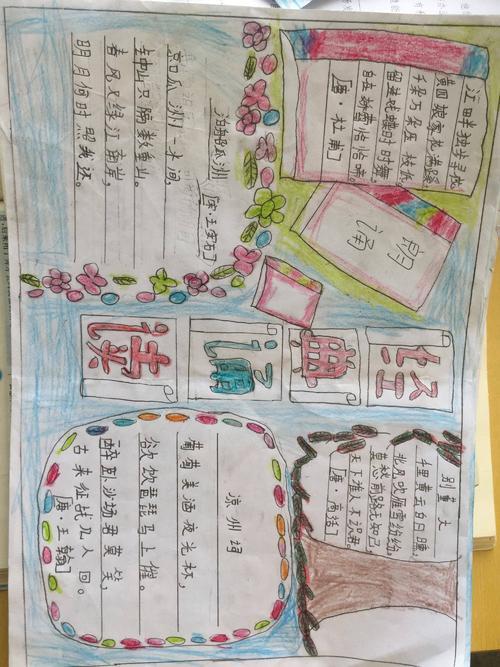 江畔独步寻花
黄四娘家花满蹊,
千朵万朵压枝低
留连戏蝶时时舞,
自在娇莺恰恰啼。
[唐·杜甫]
朗诵
泊船瓜洲
[宋·王安石]
京口瓜洲一水间,
钟山只隔数重山。
春风又绿江南岸,
明月何时照我还。
经典诵读
别董大
千里黄云白日曛,
北风吹雁雪纷纷
莫愁前路无知己,
天下谁人不识君。
[唐·高适]
凉州词
葡萄美酒夜光杯,
欲饮琵琶马上催。
醉卧沙场君莫笑,
古来征战几人回。
[唐·王翰]